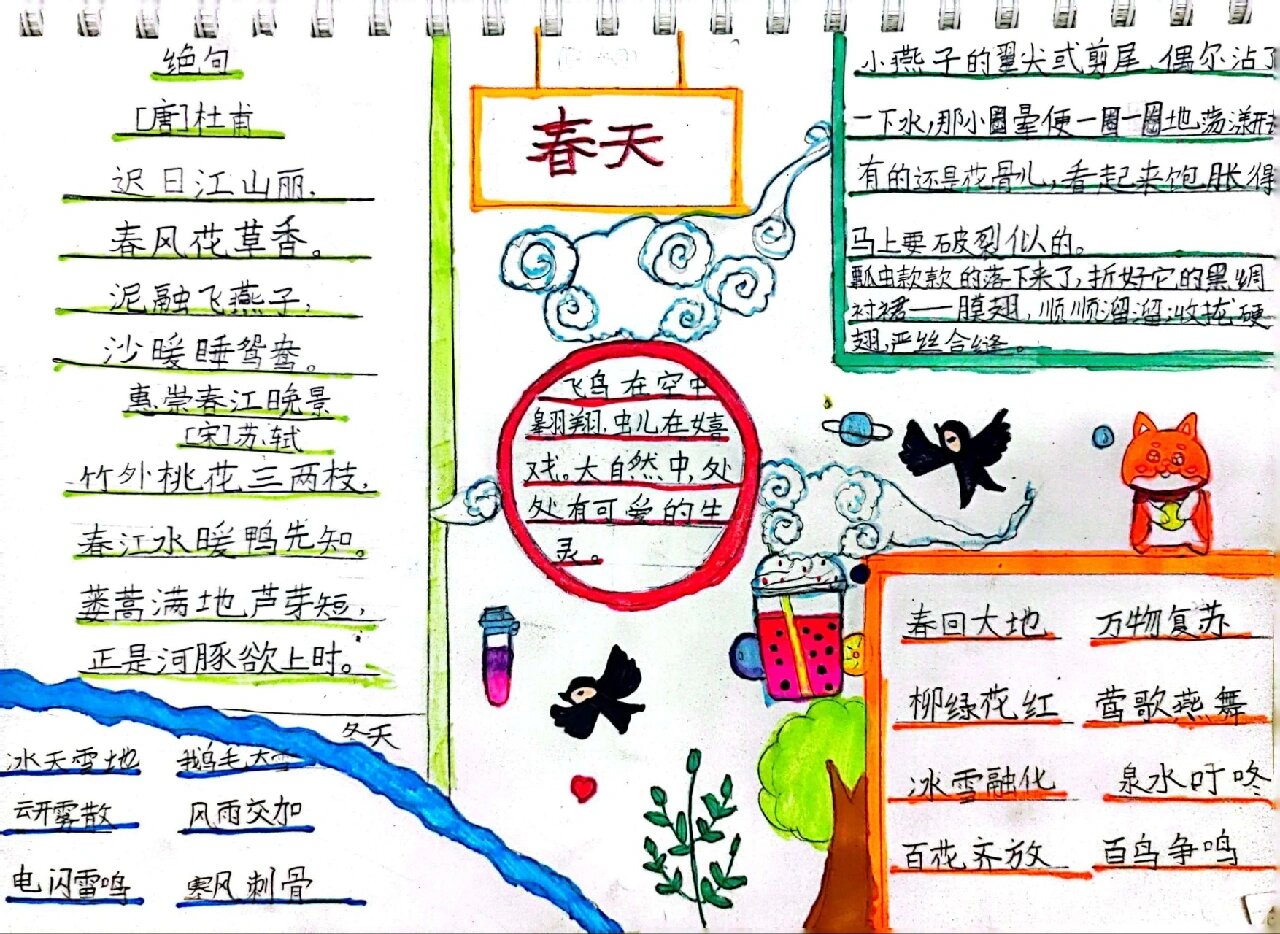 绝句
[唐]杜甫
迟日江山丽,
春风花草香。
泥融飞燕子,
沙暖睡鸳鸯。
惠崇春江晚景
[宋]苏轼
竹外桃花三两枝,
春江水暖鸭先知。
蒌蒿满地芦芽短,
正是河豚欲上时。
冬天
冰天雪地 鹅毛大雪
云开雾散 风雨交加
电闪雷鸣 寒风刺骨
春天
飞鸟在空中
翱翔,虫儿在嬉
戏。大自然中,处
处有可爱的生
灵。
小燕子的翼尖或剪尾,偶尔沾了
一下水,那小圈晕便一圈一圈地荡漾开去
有的还是花骨儿,看起来饱胀得
马上要破裂似的。
瓢虫款款的落下来了,折好它的黑绸
衬裙——膜翅,顺顺溜溜收拢硬
翅,严丝合缝。
春回大地 万物复苏
柳绿花红 莺歌燕舞
冰雪融化 泉水叮咚
百花齐放 百鸟争鸣